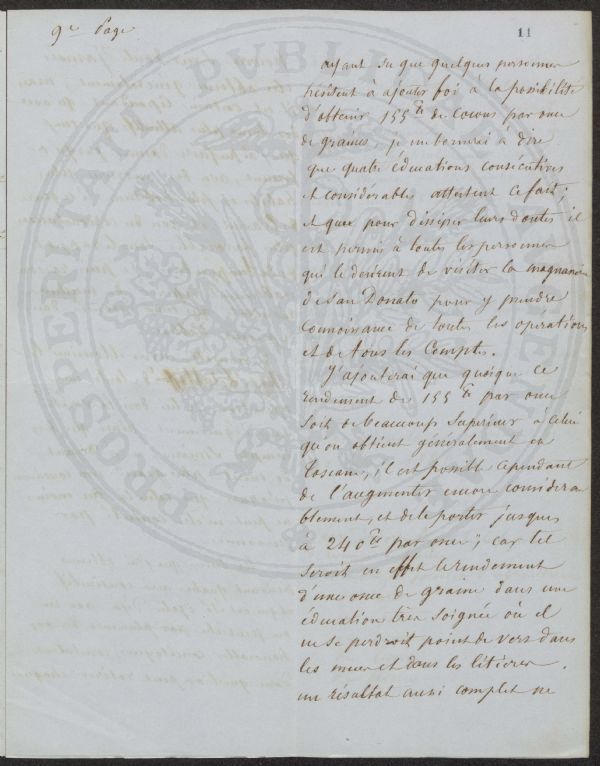 9e Page
11
ayant su que quelques personnes
hésitent à ajouter foi à la possibilité
d'obtenir 155 de cocons par once
de graines, je me bornerai à dire
que quatre éducations consécutives
et considérables attestent ce fait;
et que pour dissiper leurs doutes il
est permis à toutes les personnes
qui le desirent de visiter la magnanerie
de San Donato pour y prendre
connoissance de toutes les opérations
et de tous les Comptes.
J'ajouterai que quoique ce
rendement de 155 par once
soit de beaucoup supérieur à celui
qu'on obtient généralement en
Toscane, il est possible cependant
de l'augmenter encore considera
blement, et de le porter jusques
à 240 par once; car tel
seroit en effet le rendement
d'une once de graine dans une
éducation très soignée où il
ne se perdroit point de vers dans
les mues et dans les litières.
un résultat aussi complet ne
PROSPERITATI PVBLICAE AVGENDAE